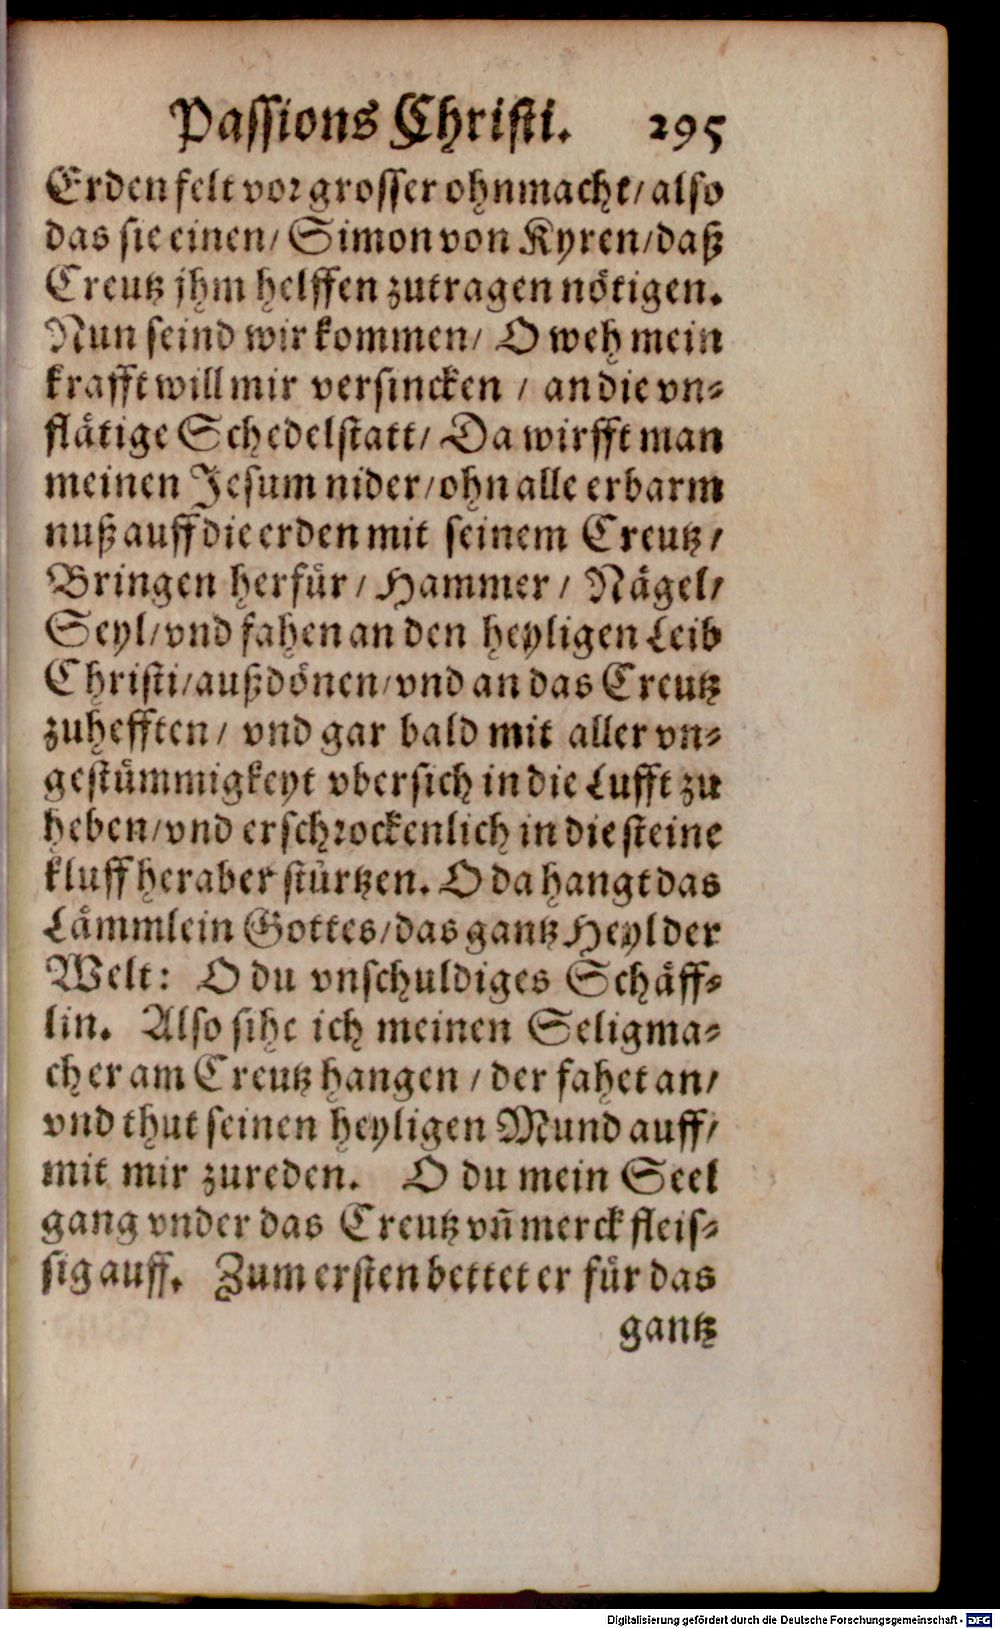 Passions Christi. 295
Erden felt vor grosser ohnmacht/ also
das sie einen/ Simon von Kyren/ daß
Creutz jhm helffen zutragen nötigen.
Nun seind wir kommen/ O weh mein
krafft will mir versincken / an die vn-
flätige Schedelstatt/ Da wirfft man
meinen Jesum nider/ ohn alle erbarm
nuß auff die erden mit seinem Creutz/
Bringen herfür/ Hammer/ Nägel/
Seyl/ vnd fahen an den heyligen Leib
Christi/ außdönen/ vnd an das Creutz
zuhefften/ vnd gar bald mit aller vn-
gestümmigkeyt vbersich in die Lufft zu
heben/ vnd erschrockenlich in die steine
kluff heraber stürtzen. O da hangt das
Lämmlein Gottes/ das gantz Heyl der
Welt: O du vnschuldiges Schäff-
lin. Also sihe ich meinen Seligma-
cher am Creutz hangen / der fahet an/
vnd thut seinen heyligen Mund auff/
mit mir zureden. O du mein Seel
gang vnder das Creutz vñ merck fleis-
sig auff. Zum ersten bettet er für das
gantz
Digitalisierung gefördert durch die Deutsche Forschungsgemeinschaft - DFG